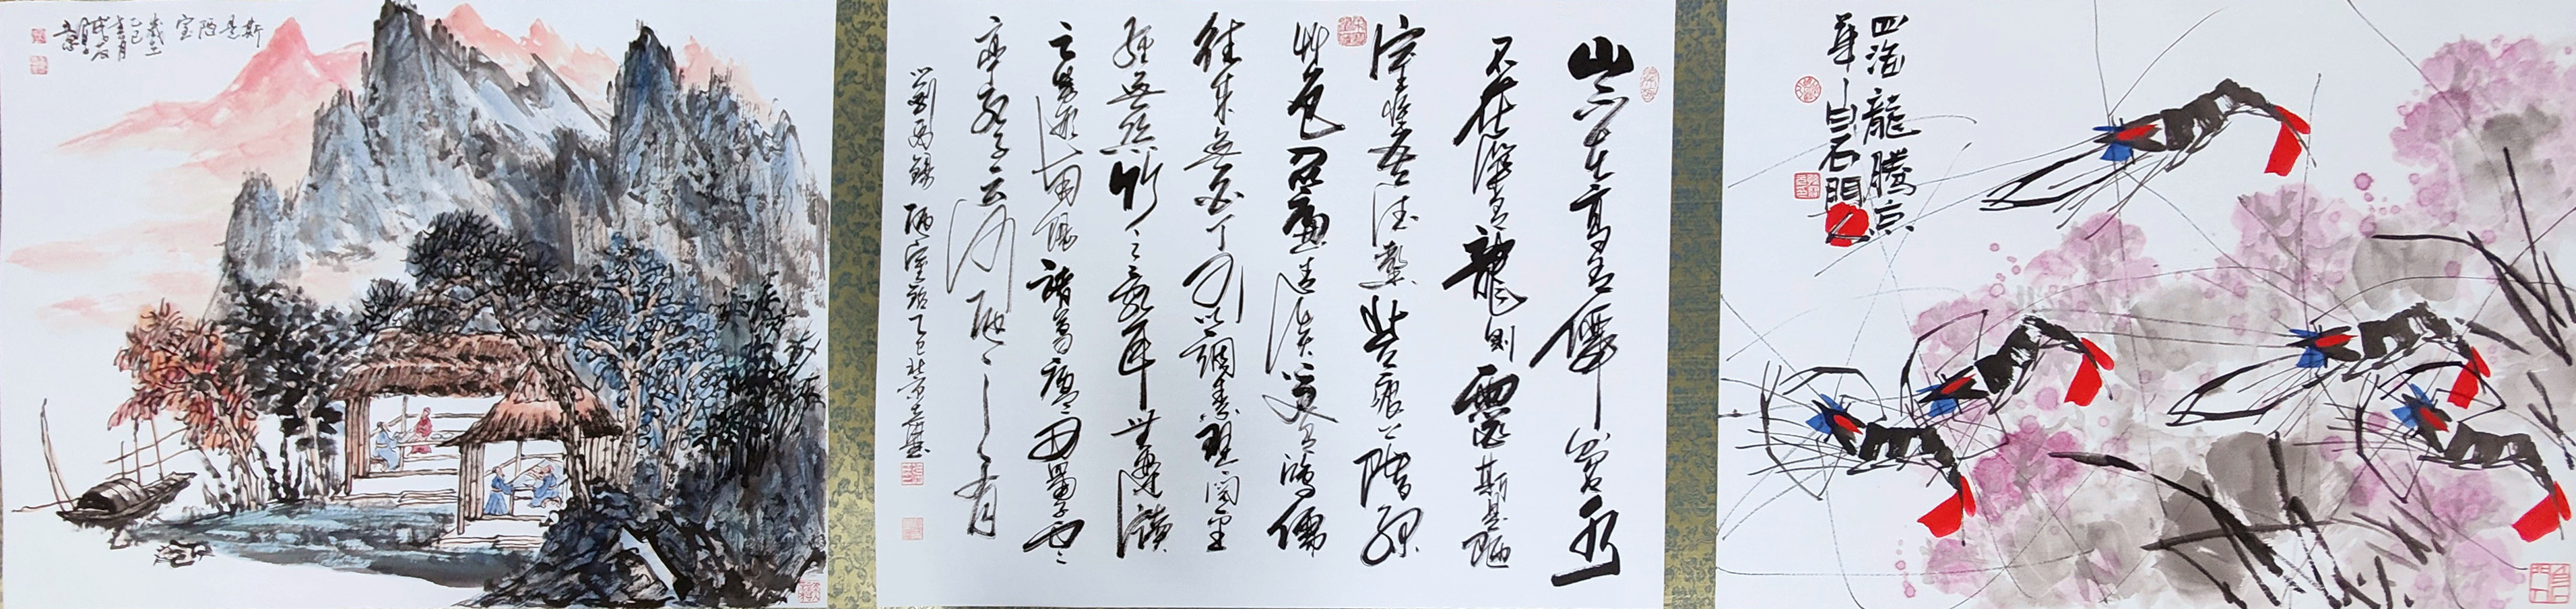 斯是陋室
山不在高有僊則名水
不在深有龍則靈斯是陋
室惟吾德馨苔痕上階緑
艸色入簾青談笑有鴻儒
往來無白丁可以調素琴閱金
經無絲竹之亂耳無案牘
之勞形南陽諸葛廬西蜀子雲
亭孔子云何陋之有
劉禹錫 陋室銘 乙巳北京
四海龍騰京
華 白石門